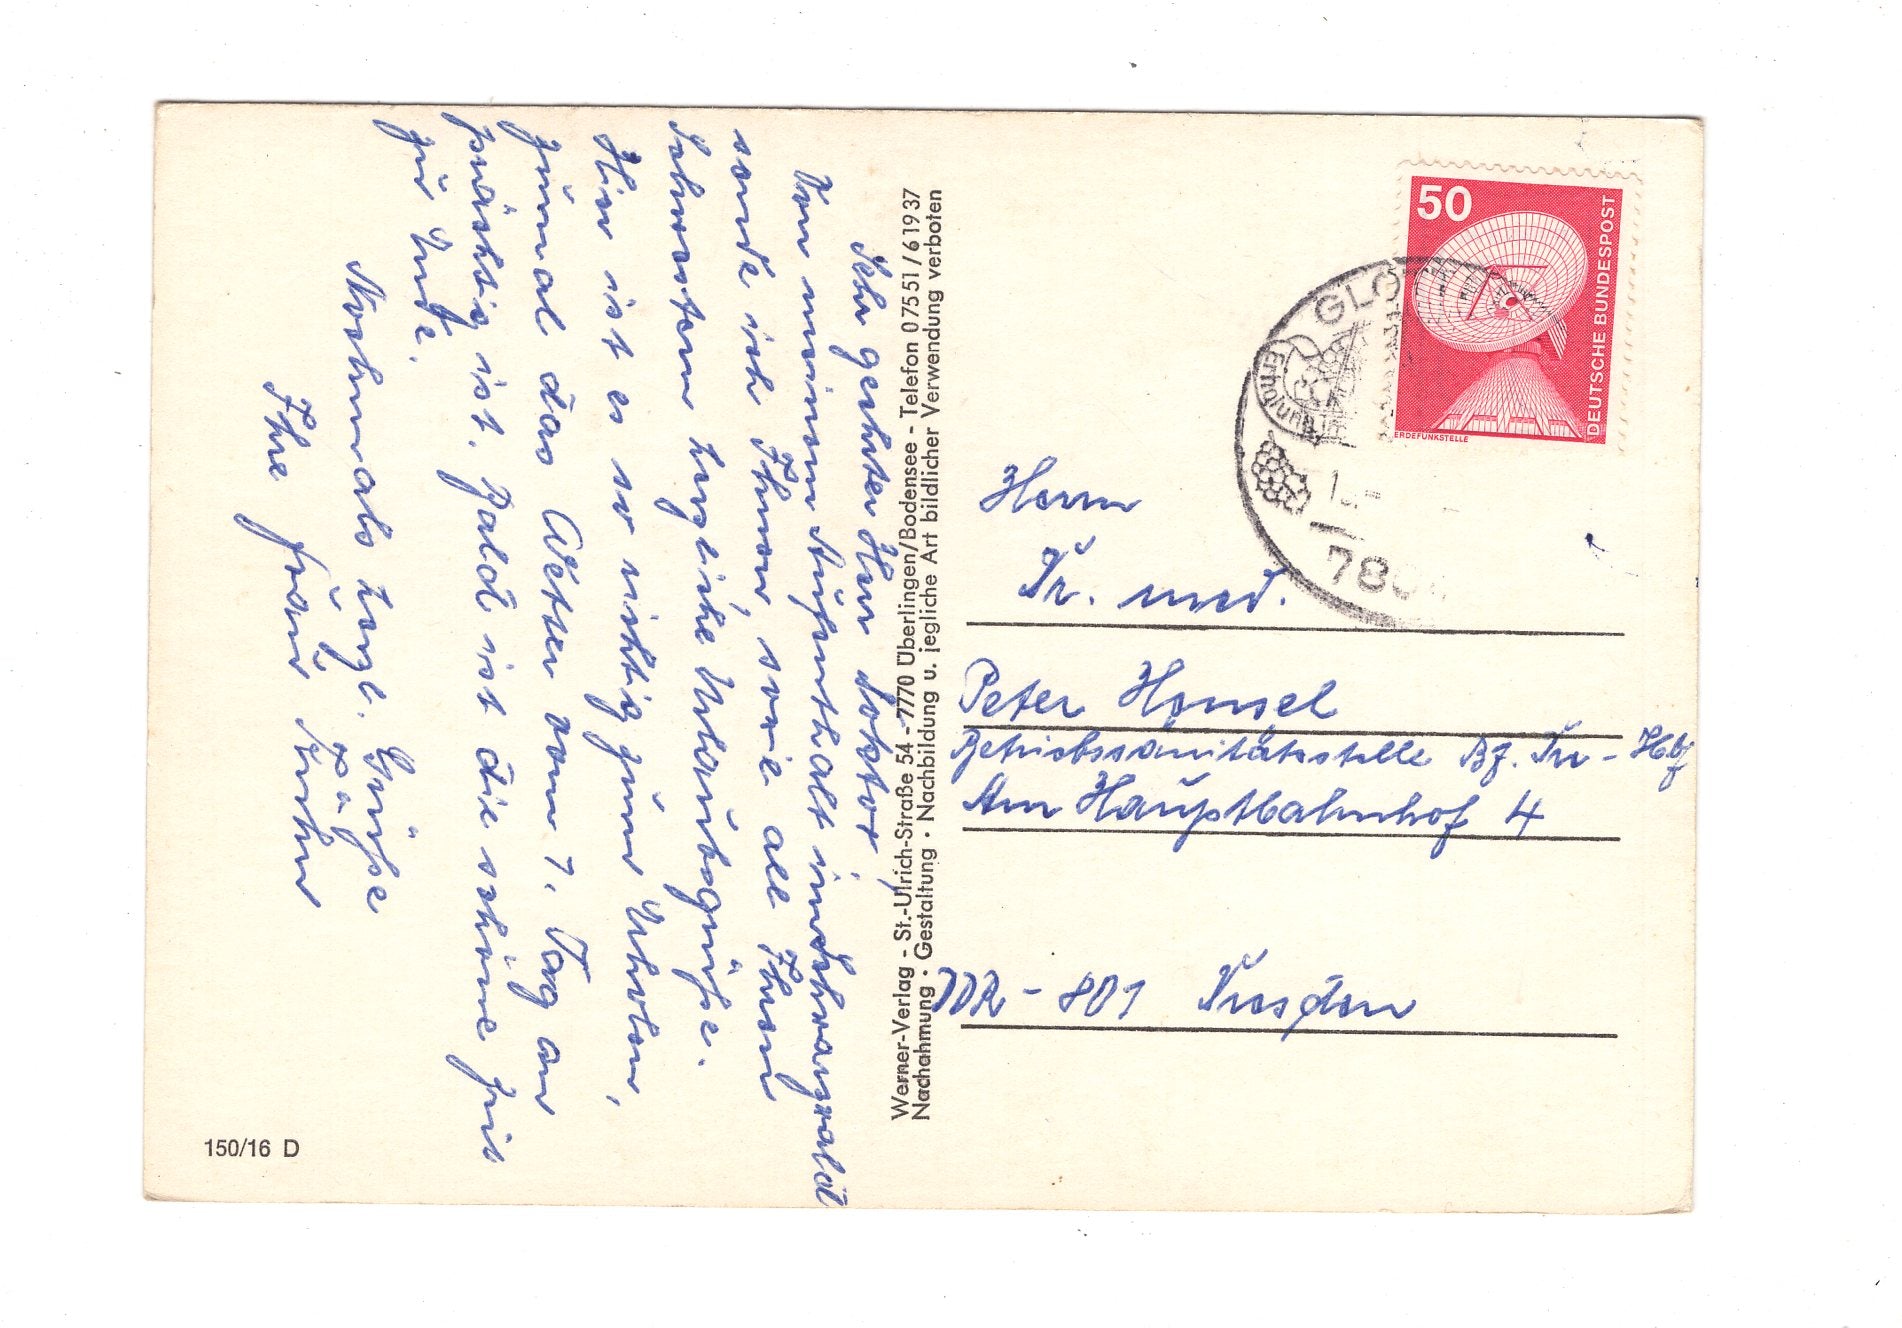 Sehr geehrter Herr Doktor!
Von meinem Aufenthalt im Schwarzwald
sende ich Ihnen, sowie all Ihren
Schwestern herzliche Urlaubsgrüße.
Hier ist es so richtig zum Erholen,
zumal das Wetter vom 1. Tag an
prächtig ist. Bald ist die schöne Zeit
zu Ende.
Nochmals herzl. Grüße
Ihre Frau
150/16 D
Werner-Verlag - St.-Ulrich-Straße 54 - 7770 Überlingen/Bodensee - Telefon 07551/61937
Nachahmung · Gestaltung · Nachbildung u. jegliche Art bildlicher Verwendung verboten
50
DEUTSCHE BUNDESPOST
ERDEFUNKSTELLE
Herrn
Dr. med.
Peter Honsel
Betriebssanitätsstelle Bf. Dr - Hbf
Am Hauptbahnhof 4
DDR - 801 Dresden